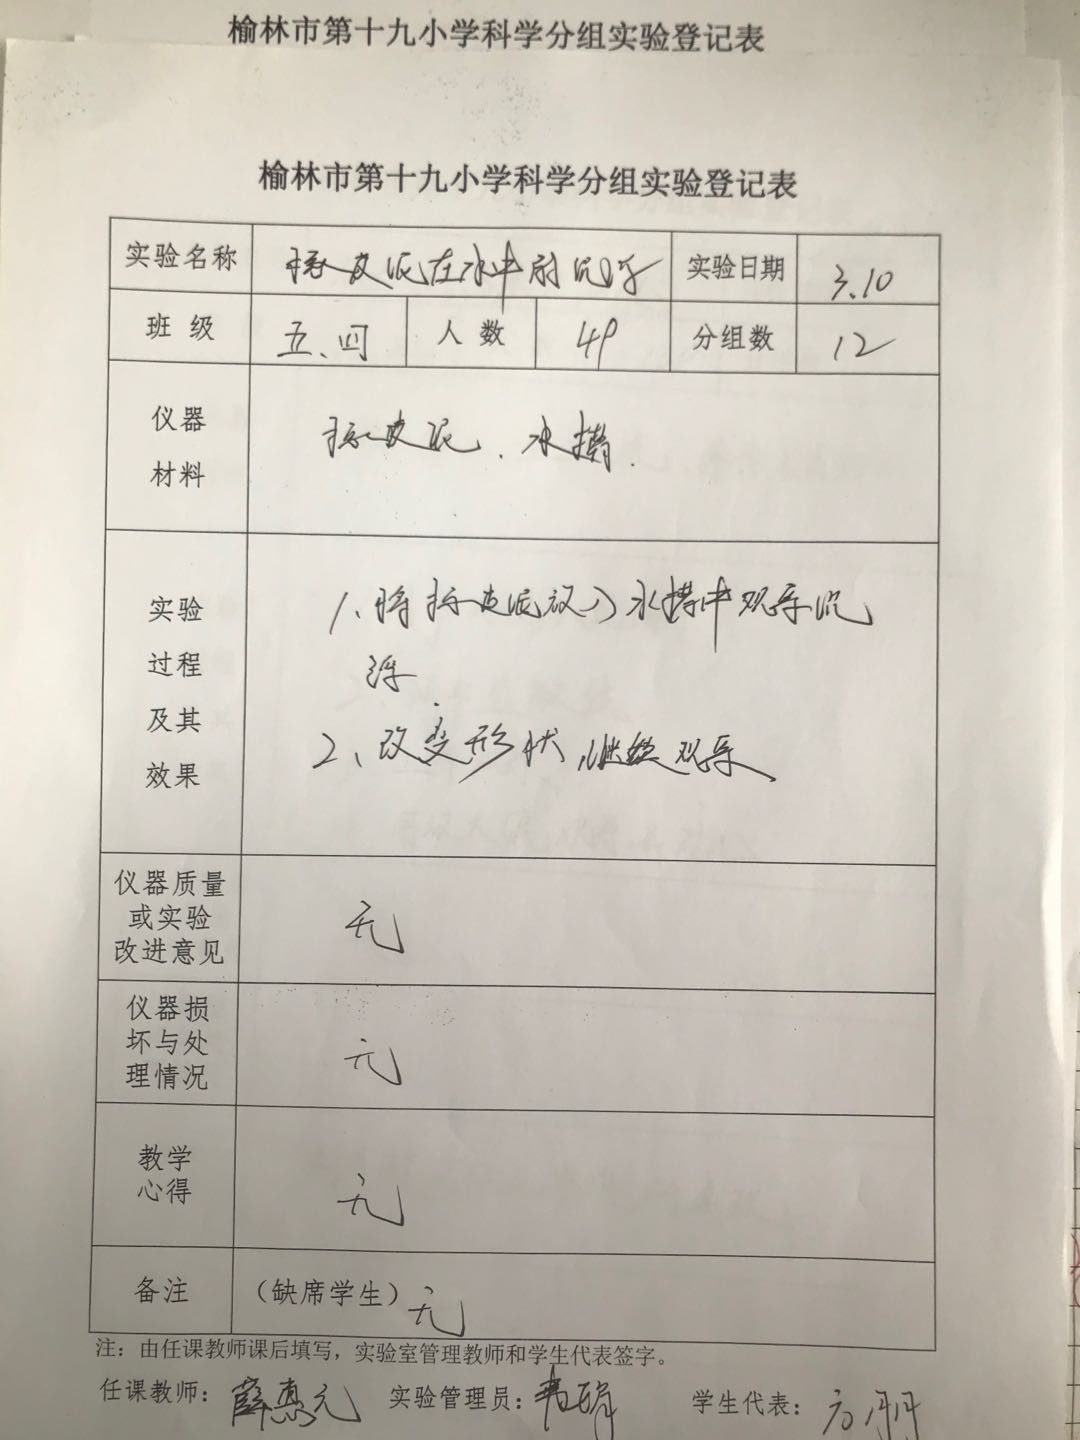 榆林市第十九小学科学分组实验登记表
榆林市第十九小学科学分组实验登记表
实验名称 橡皮泥在水中的沉浮 实验日期 3.10
班 级 五.四 人 数 49 分组数 12
仪器
材料
橡皮泥、水槽.
实验
过程
及其
效果
1、将橡皮泥放入水槽中观察沉
浮.
2、改变形状,继续观察
仪器质量
或实验
改进意见
无
仪器损
坏与处
理情况
无
教学
心得
无
备注 (缺席学生) 无
注: 由任课教师课后填写, 实验室管理教师和学生代表签字。
任课教师: 薛惠元 实验管理员: 学生代表: